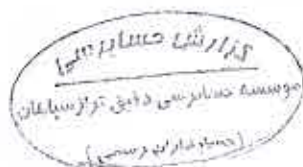 گزارش حسابرسی
موسسه حسابرسی دقیق تراز سپاهان
(حسابداران رسمی)